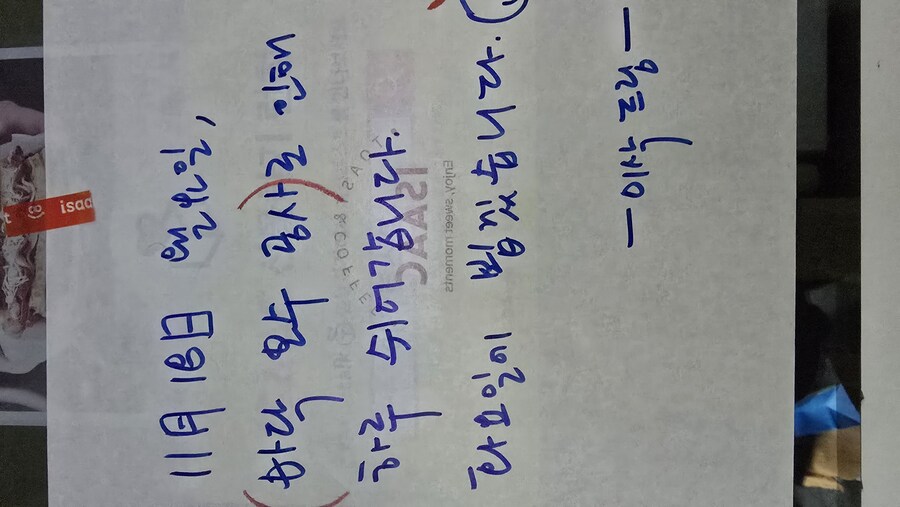 isaa
11月 18日 월요일,
(바닥 보수 공사)로 인해
하루 쉬어갑니다.
TOAST & COFFEE
ISAAC
Enjoy, sweet moments
화요일에 뵙겠습니다.
- 이삭 드림 -